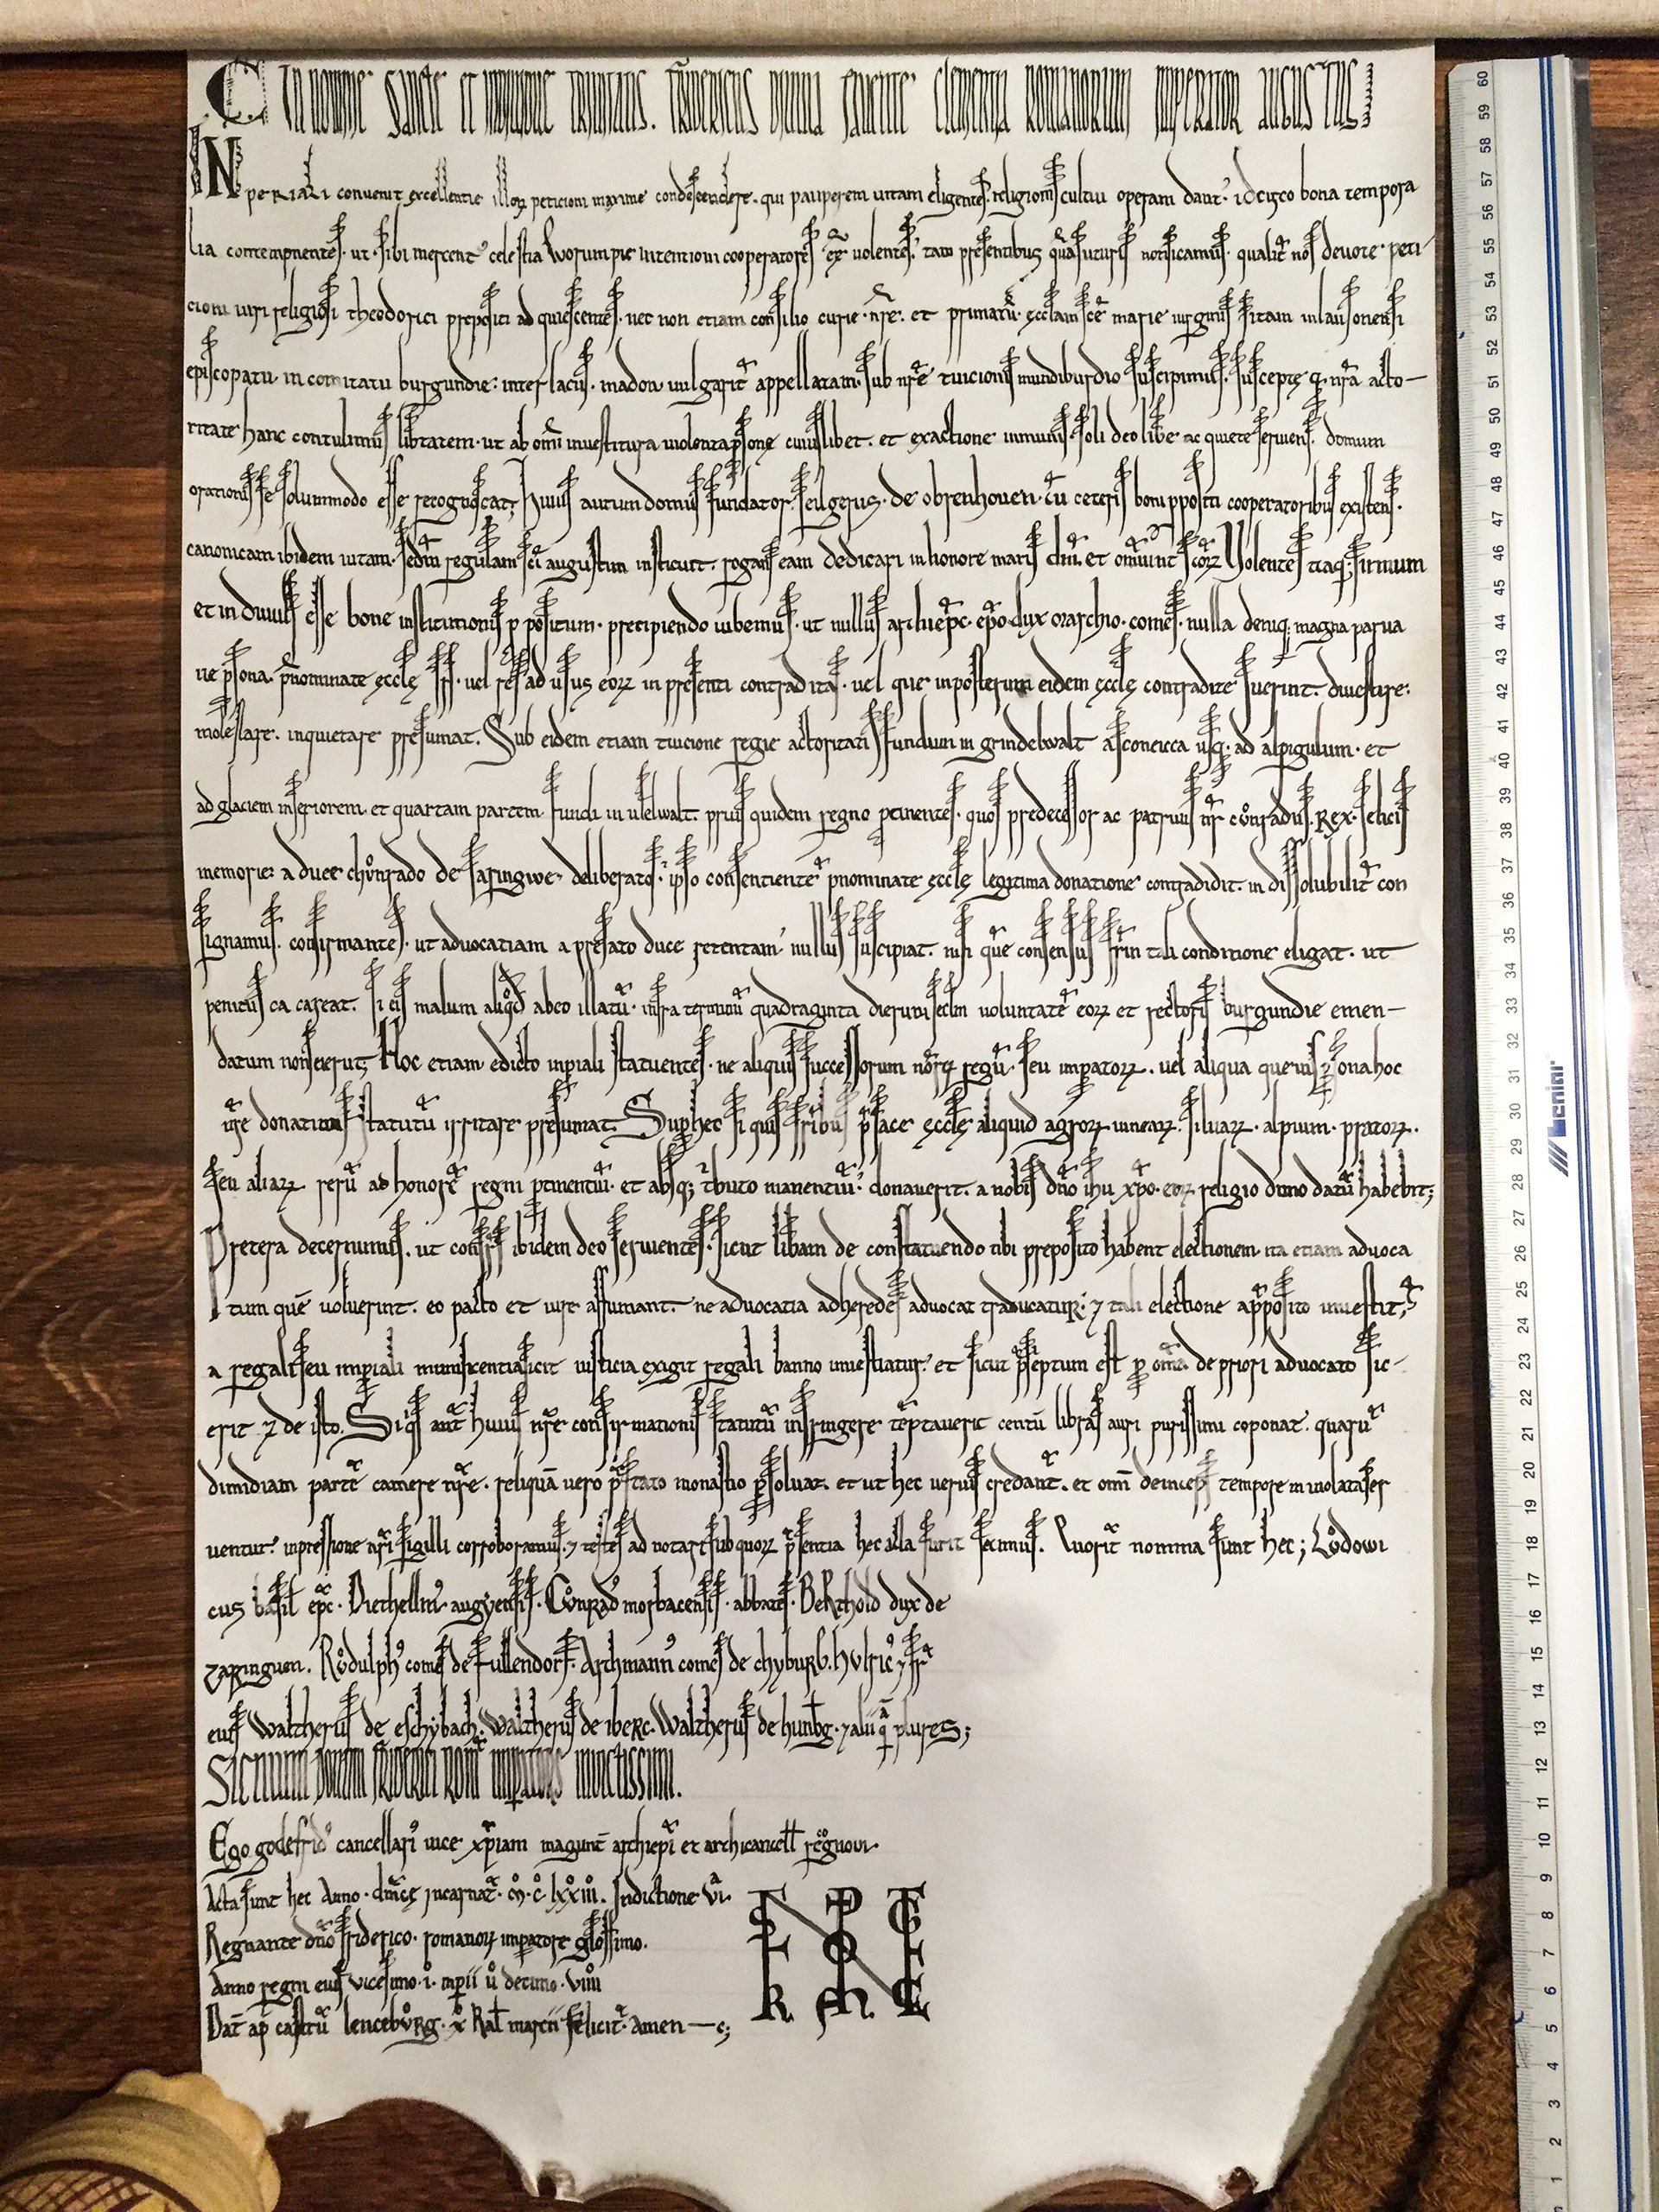 C In nomine sancte et individue trinitatis. Fridericus divina favente clementia romanorum imperator augustus;
INperiali convenit excellentie illorꝝ peticioni maxime condescendere. qui pauperem vitam eligentes. religionis cultui operam dant. idcirco bona tempora
lia contempnentes. ut sibi mercent᷒ celestia Horum pie intentioni cooperatores eē volentes. tam presentibus quā futuris notificamus. qualit̄ nos devote peti
cioni viri religiosi theodorici prepositi adquiescentes. nec non etiam consilio curie nr̄e. et primatū. ęcclam scē marie virginis sitam in lausonensi
episcopatu. in comitatu burgundie. inter lacus. madon vulgarit̄ appellatam. sub nr̄e tuicionis mundiburdio suscipimus. suscepte q. nr̄a acto-
ritate hanc contulimus lib̄tatem. ut ab om̄i investitura violenta p̄sone cuiuslibet. et exactione inmunis. soli deo lib̄e ac quiete serviens. domum
orationis se solummodo esse recognoscat; Huius autum domus fundator. seilgerus. de obrenhoven. cū ceteris boni ppositi cooperatoribus existens.
canonicam ibidem vitam. scdm̄ regulam sc̄i augustini instituit. rogans eam dedicari in honore maris dn̄i. et omiūnt scōꝝ Volentes itaq; firmum
et indivuls esse bone institutionis ppositum. precipiendo iubemus. ut nullus archiep̄c. ep̄c. dux. marchio. comes. nulla deniq; magna parva
ve p̄sona. p̄nominate ęcclę frs̄. vel res ad usus eoꝝ in presenti contraditas. vel que inposterum eidem ęcclę contradite fuerint. divestire.
molestare. inquietare presumat. Sub eidem etiam tuicione regie actoritatis fundum in grindelwalt asconeicca usq. ad alpigulum. et
ad glaciem inferiorem. et quartam partem. fundi in iselwalt. prius quidem regno ptinentes. quos predecessor ac patruus nr̄ cůnradus. rex. felicis
memorie. a duce chůnrado de saringwe. deliberatos. ipso consentiente pnominate ęcclę legitima donatione contradidit. indissolubilit̄ con
signamus. confirmantes. ut advocatiam a prefato duce retentam nullus suscipiat. nisi quē consensus frm̄ tali conditione eligat. ut
penitus ea careat. si eis malum aliqd̄ ab eo illatū. infra terminū quadraginta dierum scdm voluntatē eoꝝ et rectoris burgundie emen-
datum non fuerit; Hoc etiam edicto inpiali statuentes. ne aliquis successorum nōꝝ regū. seu imp̄atoꝝ. vel aliqua quevis psona hoc
nr̄e donationis statutū irritare presumat. Sup hec si quis frībus p̄face ęcclę aliquid agroꝝ. vineaꝝ. silvaꝝ. alpium. pratoꝝ.
seu aliaꝝ rerū ad honorē regni ptinentiū. et absq; tbuto manentiū. donaverit. a nobis dn̄o ihu xpo. eoꝝ religio dono datū habebit;
Pretera decernimus. ut confrs̄ ibidem deo servientes. sicut lib̄am de constatuendo tibi preposito habent electionem. ita etiam advoca
tum quē voluerint. eo pacto et iure assumant. ne advocatia ad heredes advocat traducatur. ⁊ tali electione a pposito investit᷒
a regali seu impiali munificentia. sicut iusticia exigit regali banno investiatur. et sicut pseptum est p om̄a de priori advocato sic-
erit ⁊ de isto. Siqs aut huius nr̄e confirmationis statutū infringere teptaverit. centū libras auri purissimi coponat. quarū
dimidiam partē camere nr̄e. reliquā vero p̄ftato monastio p̄solvat. et ut hec verius credant᷒. et om̄i deinceps tempore inviolata ser
ventur. inpressione nr̄i sigilli corroboramus. ⁊ testes adnotari sub quoꝝ p̄sentia hec acta sunt fecimus. Quorū nomina sunt hec; Lůdowi
cus basil ep̄c. Diethelm᷒ augyensis. Cůnrad᷒ morbacensis. abbates. Berthold dux de
zaringuen. Růdulph᷒ comes de fullendorf. Arthmann᷒ comes de chyburc. hulric᷒ ⁊ fr̄
eius Waltherus de eschybach. Waltherus de iberc. Waltherus de hunb̄g. ⁊ alii q̄ plures;
Signum domini friderici rom̄ imp̄atoris invictissimi.
Ego godefrid᷒ cancellari᷒ vice xp̄iani magunt̄ archiep̄i et archicancell recognovi.
Acta sunt hec Anno. dn̄icę incarnat̄. M. C. lxxiii. Indictione vi.
Regnante dn̄o friderico. romanoꝝ impatore glōssimo.
Anno regni eius vicesimo. i. inpii ů decimo. viiii
Dat̄ ap castrū lencebůrg. x kał marcii feliciť. Amen